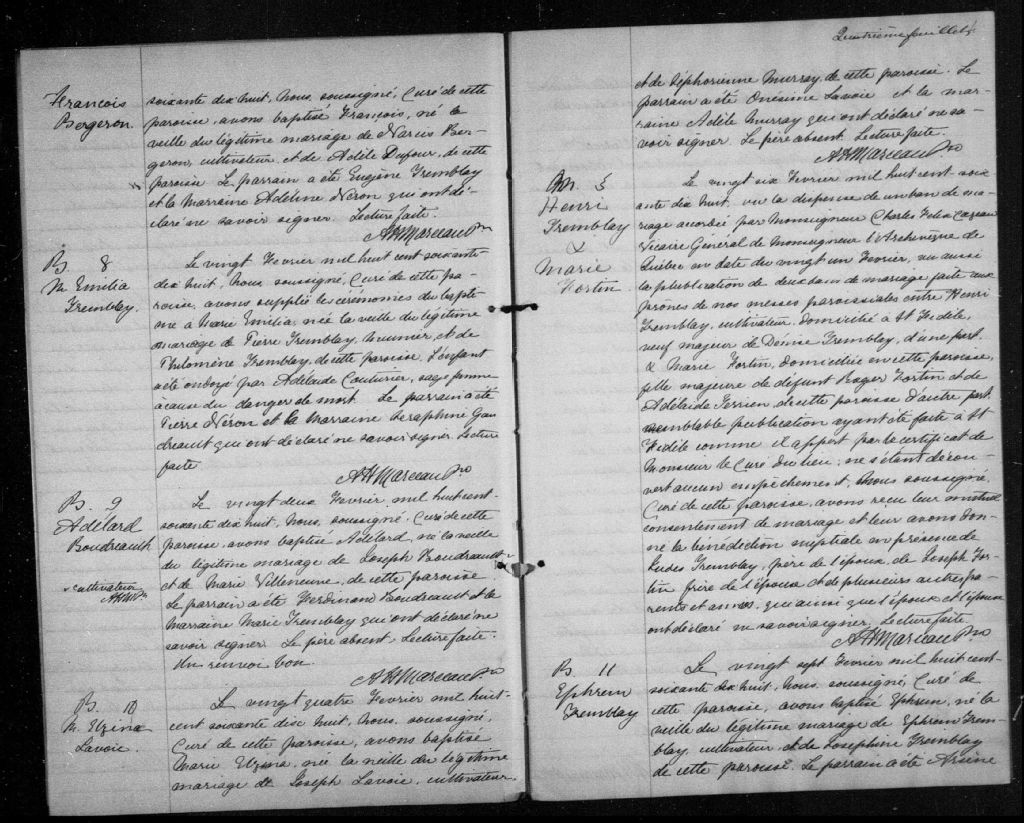 François
Bergeron.
soixante dix huit, Nous, soussigné, Curé de cette
paroisse, avons baptisé François, né la
veille du légitime mariage de Narcis Ber-
geron, cultivateur, et de Adèle Dufour, de cette
paroisse Le parrain a été Eugène Tremblay
et la Marraine Adéline Néron qui ont dé-
claré ne savoir signer. Lecture faite.
AH Marceau Ptre
B. 8
M. Emilia
Tremblay.
Le vingt Fevrier mil huit cent soixante-
dix huit, Nous, soussigné, Curé de cette pa-
roisse, avons supplié les cérémonies du baptê-
me à Marie Emilia, née la veille du légitime
mariage de Pierre Tremblay, et de
Philomène Tremblay, de cette paroisse, l'enfant
a été ondoyé par Adélaïde Couturier, sage femme
à cause du danger de mort. Le parrain a été
Pierre Néron et la Marraine Séraphine Gau
dreault qui ont déclaré ne savoir signer Lecture
faite
AH Marceau Ptre
B. 9
Adélard
Boudreault
Le vingt deux Fevrier mil huit cent-
soixante dix huit, Nous, soussigné, Curé de cette
paroisse, avons baptisé Adélard, né la veille
du légitime mariage de Joseph Boudreault
et de Marie Villeneuve, de cette paroisse
x cultivateur
AHM Ptre
Le parrain a été Ferdinand Boudreault et la
Marraine Marie Tremblay qui ont déclaré ne
savoir signer. Le père absent. Lecture faite.
Un renvoi bon.
AH Marceau Ptre
B. 10
M. Elzina
Lavoie.
Le vingt quatre Fevrier mil huit-
cent soixante dix huit, Nous, soussigné,
Curé de cette paroisse, avons baptisé
Marie Elzina, née la veille du légitime
mariage de Joseph Lavoie, cultivateur
Quatrième feuillet
et de Séphorienne Murray, de cette paroisse. Le
parrain a été Onésime Lavoie et la mar-
raine Adèle Murray qui ont déclaré ne sa-
voir signer. Le père absent. Lecture faite.
AH Marceau Ptre
M. 3
Henri
Tremblay
&
Marie
Fortin
Le vingt six Fevrier mil huit cent soix
ante dix huit, vu la dispense de un ban de ma-
riage accordée par Monseigneur Charles Felix Cazeau
Vicaire Général de Monseigneur l'Archevêque de
Québec en date du vingt un Fevrier, vu aussi
la publication de deux bans de mariage faite aux
prônes de nos messes paroissiales entre Henri
Tremblay, cultivateur, domicilié à St Fidèle,
veuf majeur de Denise Tremblay, d'une part,
& Marie Fortin, domiciliée en cette paroisse,
fille majeure de défunt Roger Fortin et de
Adélaïde Terrien, de cette paroisse d'autre part.
semblable publication ayant été faite à St
Fidèle comme il appert par le certificat de
Monsieur le Curé du lieu; ne s'étant décou-
vert aucun empêchement, Nous, soussigné,
Curé de cette paroisse, avons reçu leur mutuel
consentement de mariage et leur avons don-
né la bénédiction nuptiale en présence de
Eudes Tremblay, père de l'époux, de Joseph For-
tin frère de l'épouse et de plusieurs autres pa-
rents et amis, qui ainsi que l'époux et l'épouse
ont déclaré ne savoir signer. Lecture faite.
AH Marceau Ptre
B. 11
Ephrem
Tremblay
Le vingt sept Fevrier mil huit cent-
soixante dix huit, Nous, soussigné, Curé de
cette paroisse, avons baptisé Ephrem, né la
veille du légitime mariage de Ephrem Trem-
blay, cultivateur et de Joséphine Tremblay
de cette paroisse. Le parrain a été Arsène